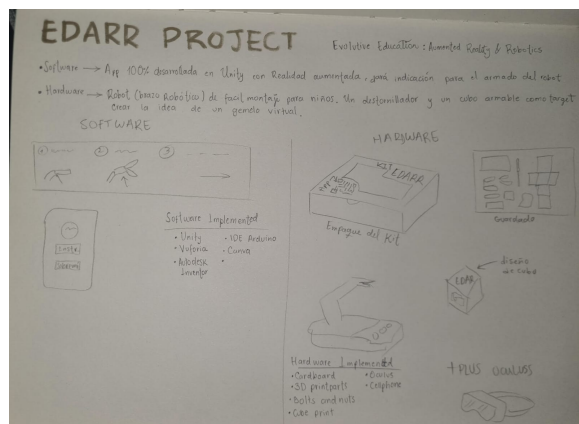 EDARR PROJECT
Evolutive Education: Aumented Reality & Robotics
• Software → App 100% desarrollada en Unity con Realidad aumentada, para indicación para el armado del robot
• Hardware → Robot (brazo Robótico) de facil montaje para niños. Un destornillador y un cubo armable como target
Crear la idea de un gemelo virtual.
SOFTWARE
1 2 3
Software Implemented
• Unity - IDE Arduino
• Vuforia - Canva
• Autodesk Inventor •
HARDWARE
KIT EDARR
Empaque del Kit
Guardado
diseño de cubo
EDAR
Hardware Implemented
• Cardboard • Oculus
• 3D printparts • Cellphone
• Bolts and nuts
• Cube print
+ PLUS OCULUSS